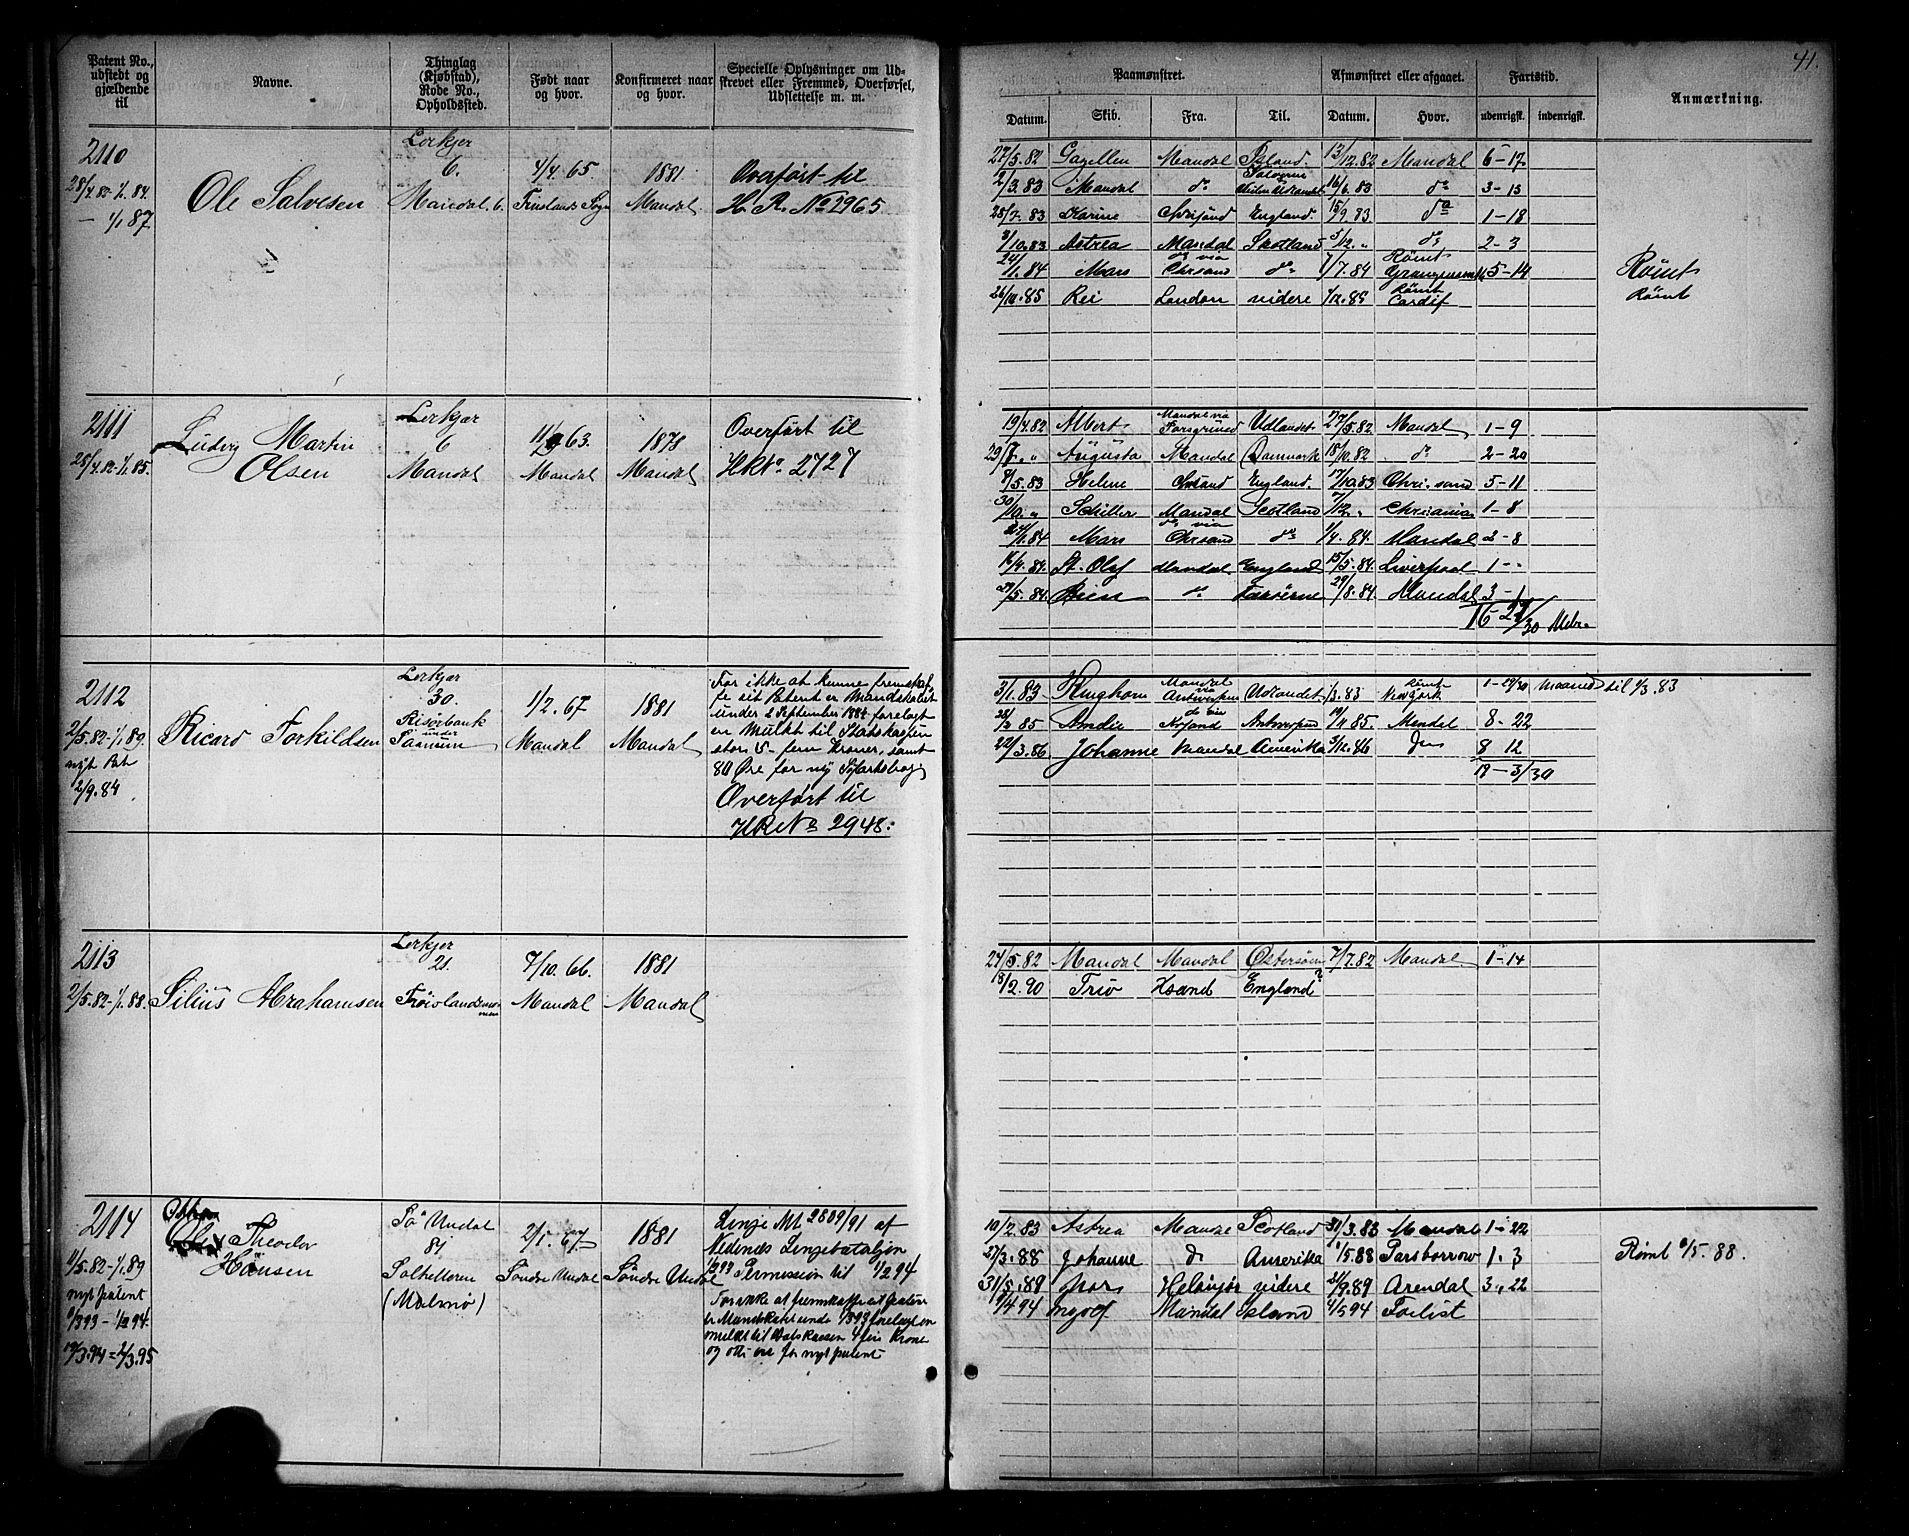 41.
Patent No., udstedt og gjældende til
Navne.
Thinglag (Kjøbstad), Rode No., Opholdssted.
Født naar og hvor.
Konfirmeret naar og hvor.
Specielle Oplysninger om Udskrevet eller Fremmed, Overførsel, Udslettelse m. m.
Paamønstret.
Afmønstret eller afgaaet.
Fartstid.
Anmærkning.
Datum. Skib. Fra. Til. Datum. Hvor. udenrigsk. indenrigsk.
2110
28/4.82-1/1.84.
- 1/1 87.
Ole Salvesen
Lerkjer
6.
Mandal. 6.
4/4. 65.
1881
Mandal
Overført til
H. R. No 2965
22/5.82 Gazellen Mandal Island. 13/12.82 Mandal 6-17
2/3.83 Mandal do 16/6.83 do 3-13
Karine England. 15/9.83 do 1-18
3/10.83 Astrea Mandal Skotland 5/12. " do 2-3
do via Rømt
24/1.84 Mars Chrsand do 1/7.84 5-14
26/10.85 Rei London videre Rømt Cardif
Rømt
Rømt
2111
28/4.82-1/1.85.
Ludvig Martin
Olsen
Lerkjær
6
Mandal
63.
Mandal
1878
Mandal
Overført til
HRNo. 2727
Mandal via
19/4.82 Albert Porsgrund Udlandet 27/5.82 Mandal 1-9
29/7. " Augusta Mandal Danmark 18/10.82 do 2-20
9/5.83 Helene Chrsand England. 17/10.83 Chri.sand 5-11
30/10. " Schiller Mandal Scotland 7/12 " Christiania 1-8
do via
24/1.84 Mars Chrsand do 1/4.84. Mandal 2-8
16/4.84. St. Olaf Mandal England 15/5.84. Liverpool 1--
Mandal 3-1
16-27/30 Mdr.
2112
2/5.82-1/1.89.
nyt Pat
2/9.84
Ricard Torkildsen
Lerkjær
30.
Risørbank
under
1/2. 67
Mandal
1881
Mandal
For ikke at kunne fremskaf-
fe sit Patent er Mandskabet
under 2 September 1884 forelagt
en Mulkt til Statskassen
stor 5- fem Kroner, samt
80 Øre for ny Sjøfartsbog
Overført til
HRNo 2948:
3/1.83 Kinghorn Mandal via Antwerpen Udlandet 1/3.83 Rømt Newjork 1-29/30 Maaned til 1/3.83
28/2 85 Amelie Antwerpen 19/11 85. Mandal 8-22
22/3.86 Johanne Mandal Amerika 3/12.86 do 8 12
19-3/30
2113
2/5.82-1/1.88.
Silius Abrahamsen
Lerkjer
21.
7/10. 66.
Mandal
1881
Mandal
24/5.82 Mandal Mandal Østersøen 7/7.82 Mandal 1-14
18/2.90 Trio Xsand England?
2114
11/5.82-1/1.89
nyt patent
1/3 93-1/2 94.
19/3.94=2/3.95
Theodor
Hansen
Sø Undal
84
(Malmø)
2/1. 67
Søndre Undal
1881
Søndre Undal
Linje Nr 2809/91 af
Nedenæs Linjebataljon
Permission til 1/2 94
For ikke at fremskaffe sit patent
er Mandskabet under 1/3 93 forelagt en
mulkt til Statskassen 4 fire Kroner
og otti øre for nyt patent
10/2.83 Astrea Mandal Scotland 31/3.83 Mandal 1-22
27/3.88 Johanne do Amerika 1/5.88 Parsborrow 1. 3
31/5.89 Helsingør videre 21/9.89 Arendal 3., 22
Mandal Island 4/5 94 Forlist
Rømt 1/5. 88.